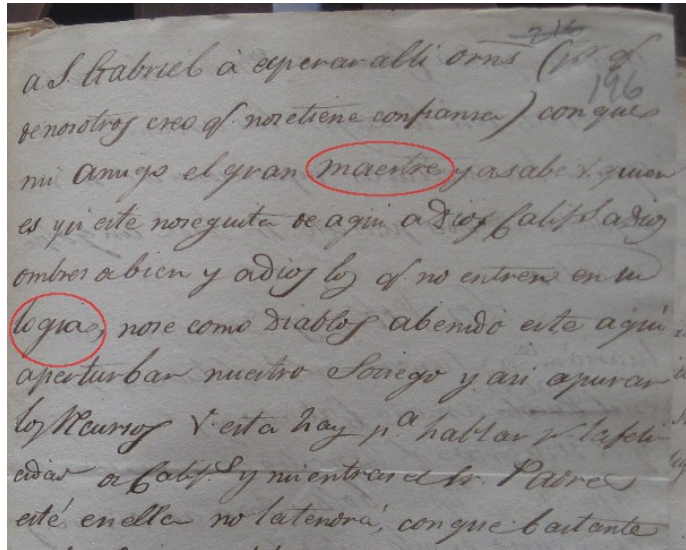 216
196
a S. Gabriel à esperar alli orns (pr. q.
de nosotros creo q. no se tiene confianza) con que
mi amigo el gran maestre ya sabe V. quien
es y si este no se quita de aqui a Dios Calif.ª a Dios
ombres abien y adios los q. no entren en su
logia, nose como Diablos abenido este aqui
aperturbar nuestro Sociego y asi apurar
los Recursos V. esta hay p.ª hablar
cidad Calif.ª y mientras el Sr. Padres
esté en ella no la tendrá, con que bastante